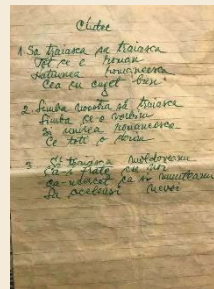 1. Să traiasca sa traiasca
Tot ce e roman
natiunea romanesca
Cea cu cuget bun
2. Limba noastra să traiasca
Limba ce o vorbim
Si unirea romanesca
Ce toti o dorim
3. Să traiasca moldoveanu
frate cu noi
ca si munteanu
Sa